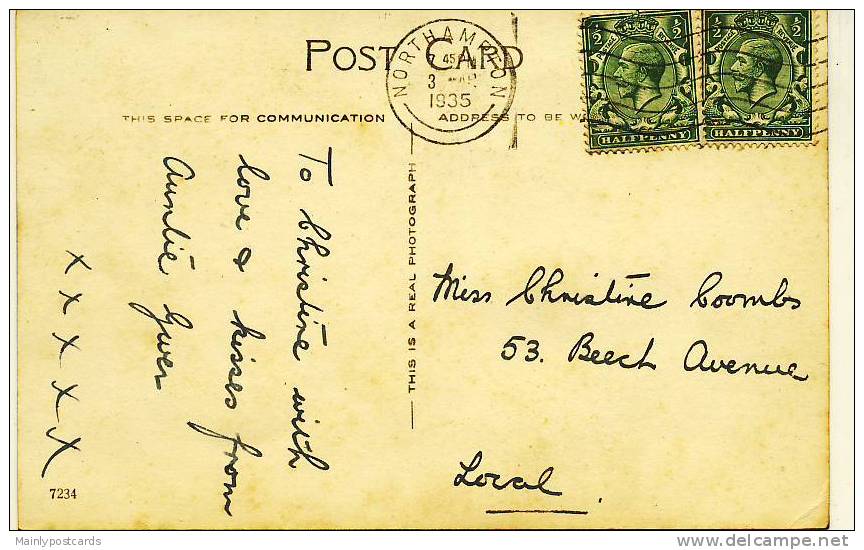 POST CARD
NORTHAMPTON
1935
THIS SPACE FOR COMMUNICATION
ADDRESS TO BE
1/2 1/2
HALFPENNY
1/2 1/2
HALFPENNY
To Christine with
love & kisses from
Auntie Gwen
x x x x x
THIS IS A REAL PHOTOGRAPH
Miss Christine Coombs
53. Beech Avenue
Local.
7234
Mainlypostcards
delcampe.net